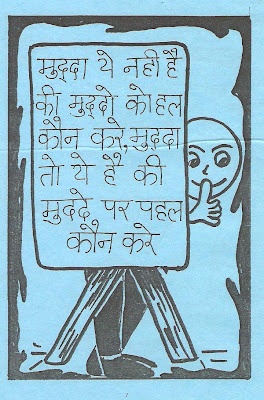 मुद्दा ये नही है
की मुद्दो को हल
कौन करे, मुद्दा
तो ये है की
मुददे पर पहल
कौन करे